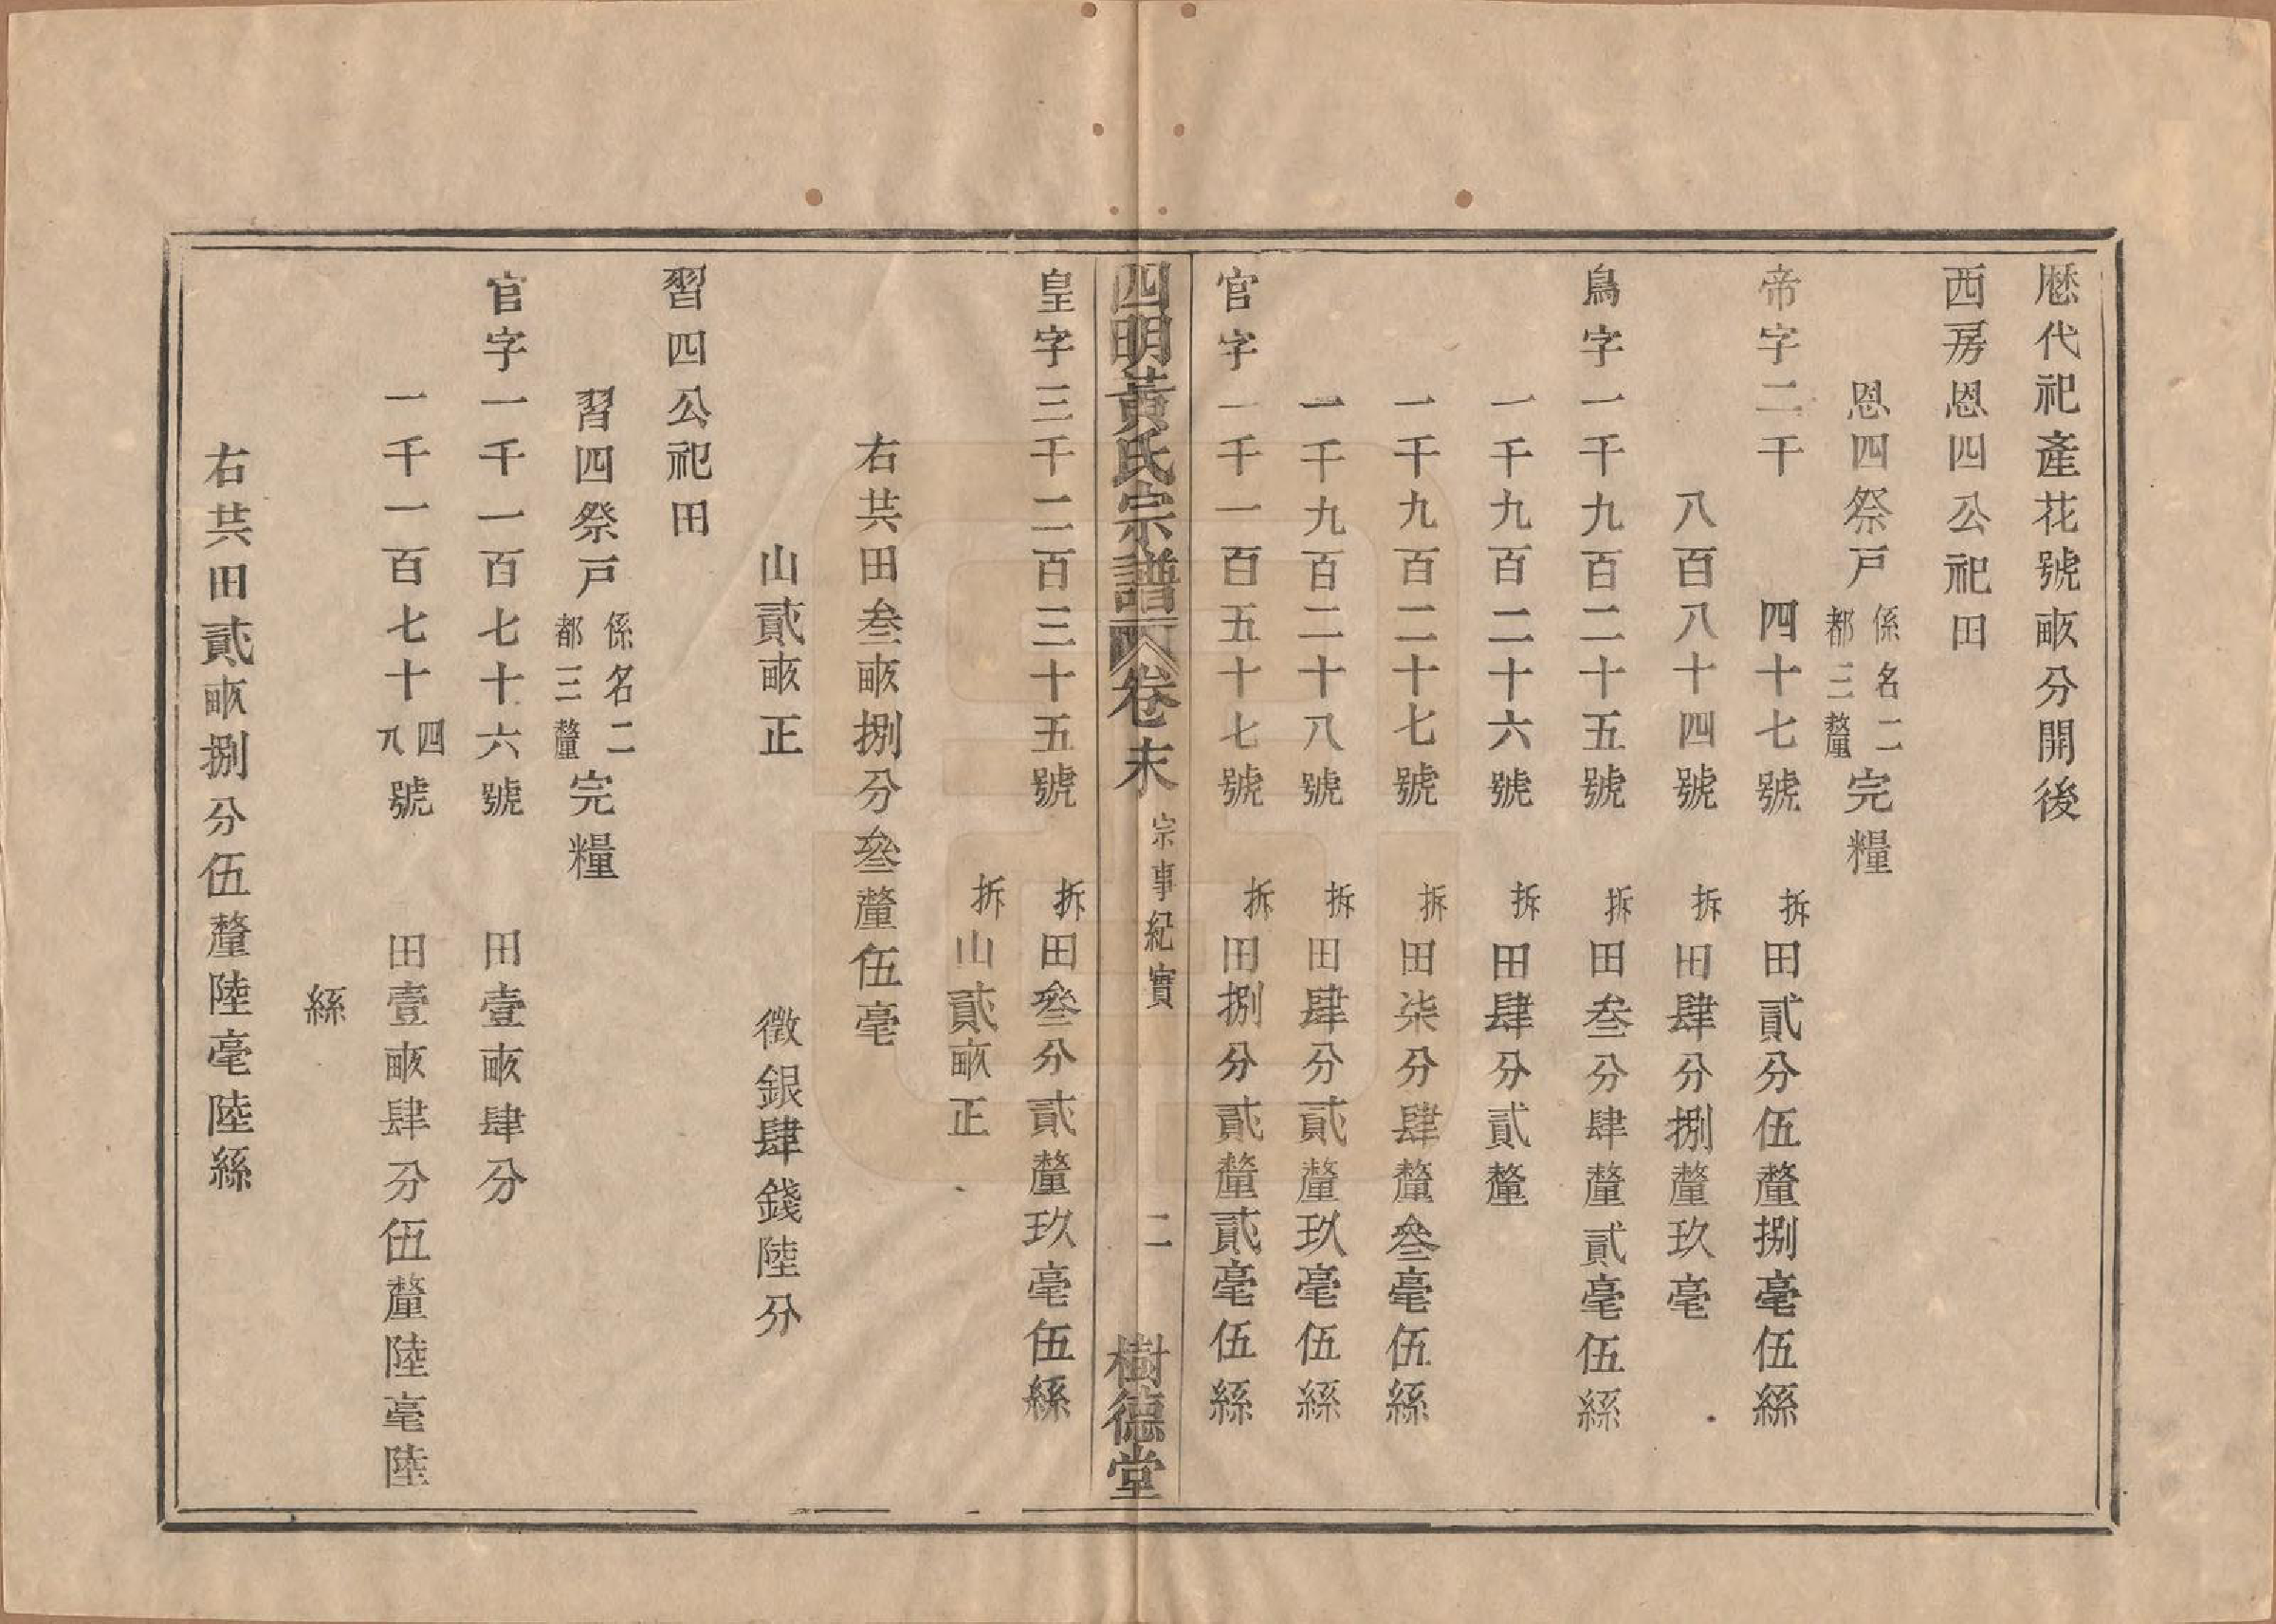 歴代祀產花號畝分開後
西房恩四公祀田
恩四祭戸係名二都三𨤲完糧
帝字二千　四十七號　拆田貳分伍釐捌毫伍絲
八百八十四號　拆田肆分捌釐玖毫
鳥字一千九百二十五號　拆田叁分肆釐貳毫伍絲
一千九百二十六號　拆田肆分貳釐
一千九百二十七號　拆田柒分肆釐叄毫伍絲
一千九百二十八號　拆田肆分貳釐玖毫伍絲
官字一千一百五十七號　拆田捌分貳釐貳毫伍絲
四明黃氏宗譜　卷末　宗事紀實　二　樹德堂
皇字三千二百三十五號　拆田叄分貳釐玖毫伍絲
拆山貳畝正
右共田叁畝捌分叄釐伍毫
山貳畝正　徵銀肆錢陸分
習四公祀田
習四祭戸係名二都三釐完糧
官字一千一百七十六號　田壹畝肆分
一千一百七十四八號　田壹畝肆分伍釐陸毫陸
絲
右共田貳畝捌分伍釐陸毫陸絲